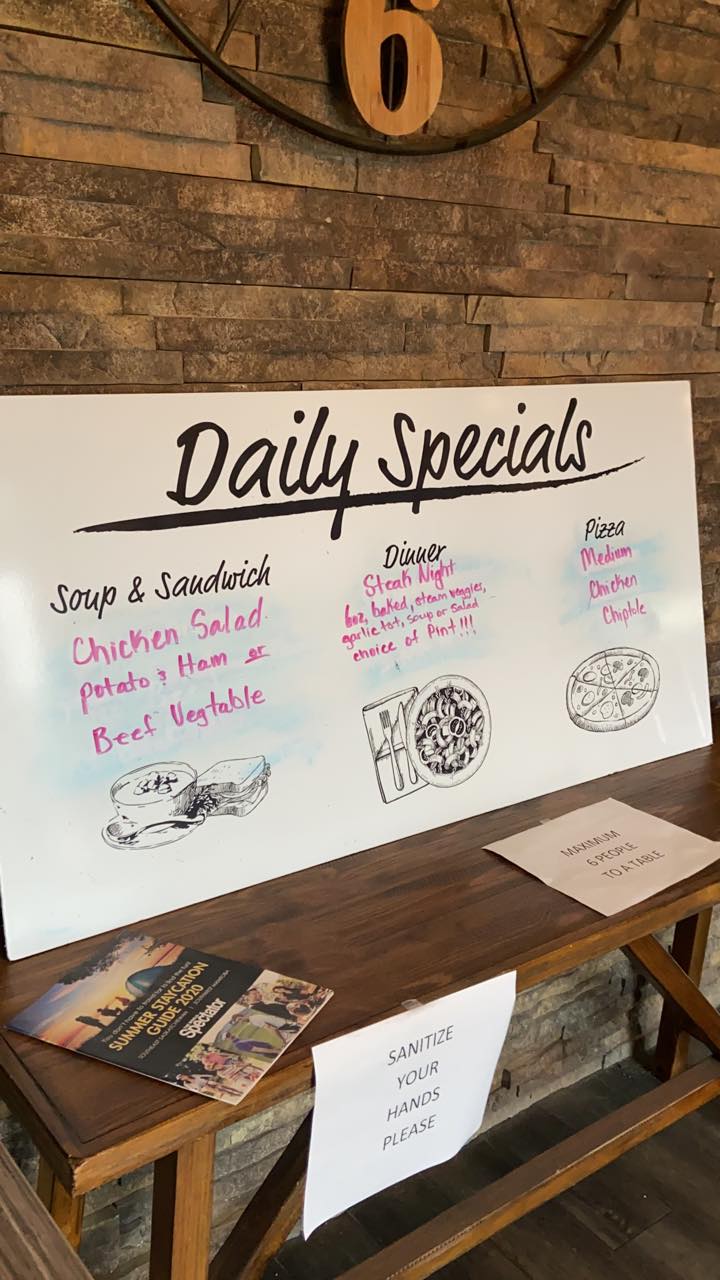 6
Daily Specials
Soup & Sandwich
Chicken Salad
potato & Ham or
Beef Vegtable
Dinner
Steak Night
6oz, baked, steam veggies,
garlic tst, soup or salad
choice of Pint!!!
Pizza
Medium
Chicken
Chiptole
MAXIMUM
6 PEOPLE
TO A TABLE
You don't have to travel far to find the fun!
SUMMER STAYCATION
GUIDE 2020
Spectator
SANITIZE
YOUR
HANDS
PLEASE